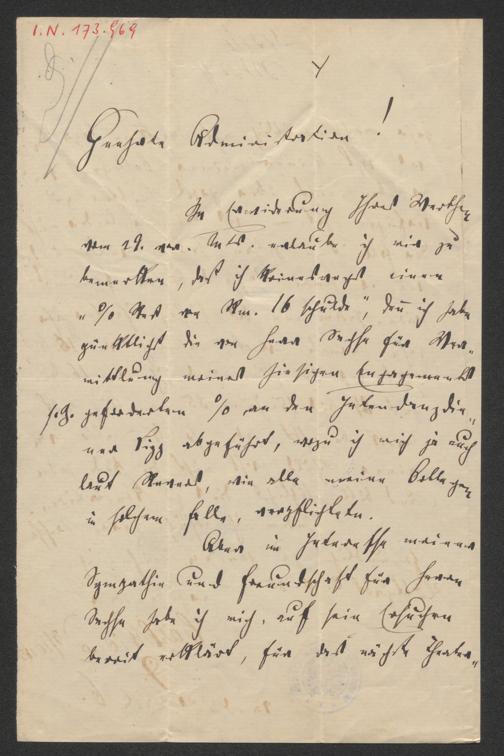 I.N. 173.969
Geehrte Administration!
In Erwiderung Ihres Werthen
vom 29. v. Mts. erlaube ich mir zu
bemerken, daß ich keineswegs einen
„% Rest von Rm. 16 schulde“, denn ich habe
pünktlichst die von Herrn Sachse für Ver-
mittlung meines hiesigen Engagements
s. Z. geforderten % an den Intendanzdie-
ner Sigg abgeführt, wozu ich mich ja auch
laut Revers, wie alle meine Collegen
in solchem Falle, verpflichtete.
Aber im Interesse meiner
Sympathie und Freundschaft für Herrn
Sachse habe ich mich, auf sein Ersuchen
bereit erklärt, für das nächste Theater-